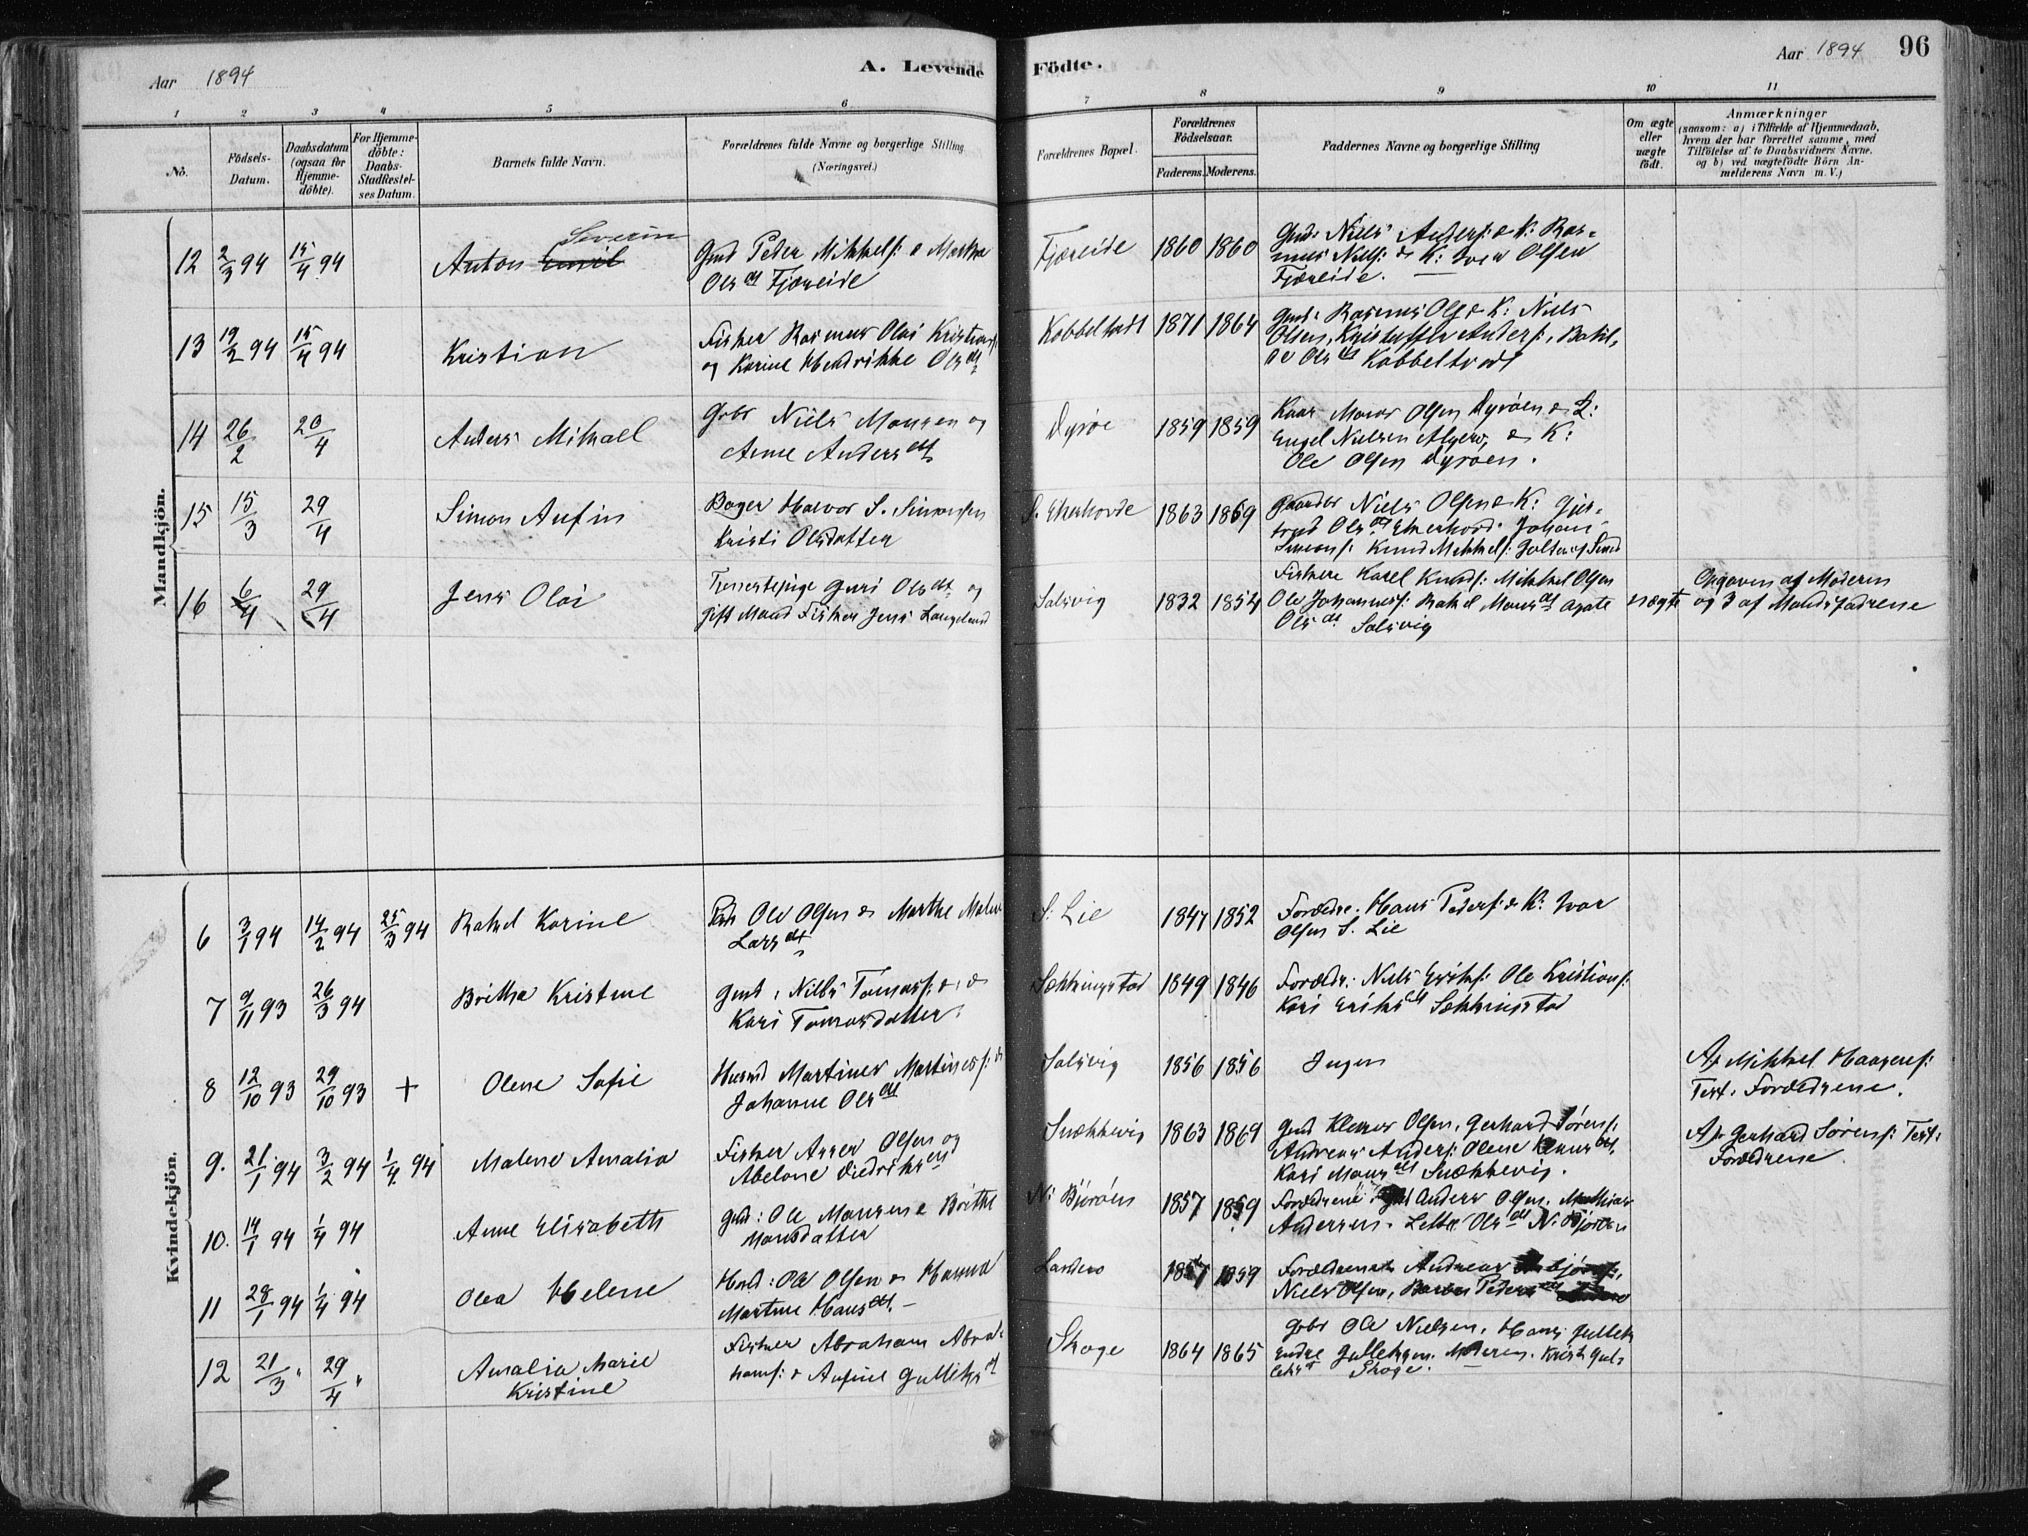 Aar 1894
A. Levende
Födte.
Aar 1894
96
1 2 3 4 5 6 7 8 9 10 11
No.
Födsels-
Datum.
Daabsdatum
(ogsaa for
Hjemme-
döbte).
For Hjemme-
döbte:
Daabs-
Stadfæstel-
ses Datum.
Barnets fulde Navn.
Forældrenes fulde Navne og borgerlige Stilling
(Næringsvei.)
Forældrenes Bopæl.
Forældrenes
Födselsaar.
Faderens. Moderens.
Faddernes Navne og borgerlige Stilling
Om ægte
eller
uægte
födt.
Anmærkninger
(saasom: a) i Tilfælde af Hjemmedaab,
hvem der har forrettet samme, med
Tilföielse af to Daabsvidners Navne,
og b) ved uægtefödte Börn An-
melderens Navn m. V.)
Mandkjön.
12 2/3 94 15/4 94
Severin
Anton Emil
Gmd Peder Mikkels: & Martha
Ols dt Fjæreide
Fjæreide 1860 1860
Gmd: Niels Anders: & K: Ras-
mus Niels: & K: Iver Olsen
Fjæreide.
13 19/2 94 15/4 94
Kristian
Fisker Rasmus Olai Kristians:
og Karine Hendrikke Ols dt
Kobbeltvedt 1871 1864
Gmd: Rasmus Ols & K: Niels
Olsen, Kristoffer Anders:, Rakel
Ols dt Kobbeltvedt
14 26/2 20/4
Anders Mikael
Gbr Niels Monsen og
Anne Anders dt
Dyröe 1859 1859
Mons Olsen Dyröen &
Engel Nielsen Algerö, & K:
Ole Olsen Dyröen.
15 15/3 29/4
Simon Anfin
Bager Halvor S. Simonsen
Kristi Olsdatter
S. Ekerhovde 1863 1869
Niels Olsen & K: Gjer-
trud Ols dt Ekerhovd. Johan
Simons: Knud Mikkels: Golten af Sund
16 6/4 29/4
Jens Olai
Tjenestepige Guri Ols dt og
Gift Mand Fisker Jens Langeland
Solsvig 1832 1854
Fiskere Karel Knuds: Mikkel Olsen
Ole Johannes: Rakel Mons dt Agate
Ols dt Solsvig
uægte
Opgaven af Moderen
og 3 af Mandsfadrene
Kvindekjön.
6 3/1 94 14/2 94 25/3 94
Rakel Karine
Ole Olsen & Marthe Malene
Lars dt
S. Lie 1847 1852
Forældre. Hans Peders: & K: Ivar
Olsen S. Lie
7 9/11 93 26/3 94
Britha Kristine
Gmd: Niels Tomas: &
Kari Tomasdatter.
Sekkingstad 1849 1846
Forældr: Niels Eriks: Ole Kristians:
Kari Eriks dt Sekkingstad
8 12/10 93 29/10 93 +
Olene Sofie
Husmd Martines Martines: &
Johanne Ols dt
Solsvig 1856 1856
Ingen
Af Mikkel Haagens:
Test. Forældrene.
9. 21/1 94 3/2 94 1/4 94
Malene Amalia
Fisker Asser Olsen og
Abelone Diedriks dt
Snekkevig 1863 1869
Gmd Klemes Olsen, Gerhard Sörens:
Andreas Anders: Olene
Kari Mons dt Snækkevig.
Af Gerhard Sörens: Test:
Forældrene.
10. 14/1 94 1/4 94
Anne Elisabeth
Gmd: Ole Monsen & Brithe
Monsdatter
N: Björöen 1857 1859
Forældrene Anders Olsen. Mathias
Andersen. Ols dt N: Björöen
11 28/1 94 1/4 94
Olea Helene
Hmd: Ole Olsen & Hanna
Martine Hans dt. –
Landerö 1857 1859
Forældrene & Andreas
Niels Olsen, Peders dt
12 21/3 " 29/4 "
Amalia Marie
Kristine
Fisker Abraham Abra-
hams: & Anfine Gulleks dt
Skoge 1864 1865
Gbr Ole Nielsen. Hans Gulleks
Endre Gulleksen. Moderen. Kristi Gul-
leks dt Skoge.